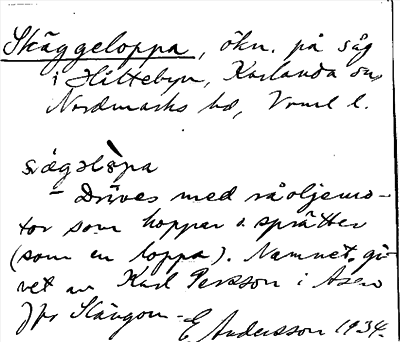 Skäggeloppa, ökn. på såg
i Hiltebyn, Karlanda sn
Nordmarks hd, Vrml l.
– Drives med råoljemo-
tor som hoppar o. sprätter
(som en loppa). Namnet gi-
vet av Karl Persson i Åsen
Jfr
E Andersson 1934.